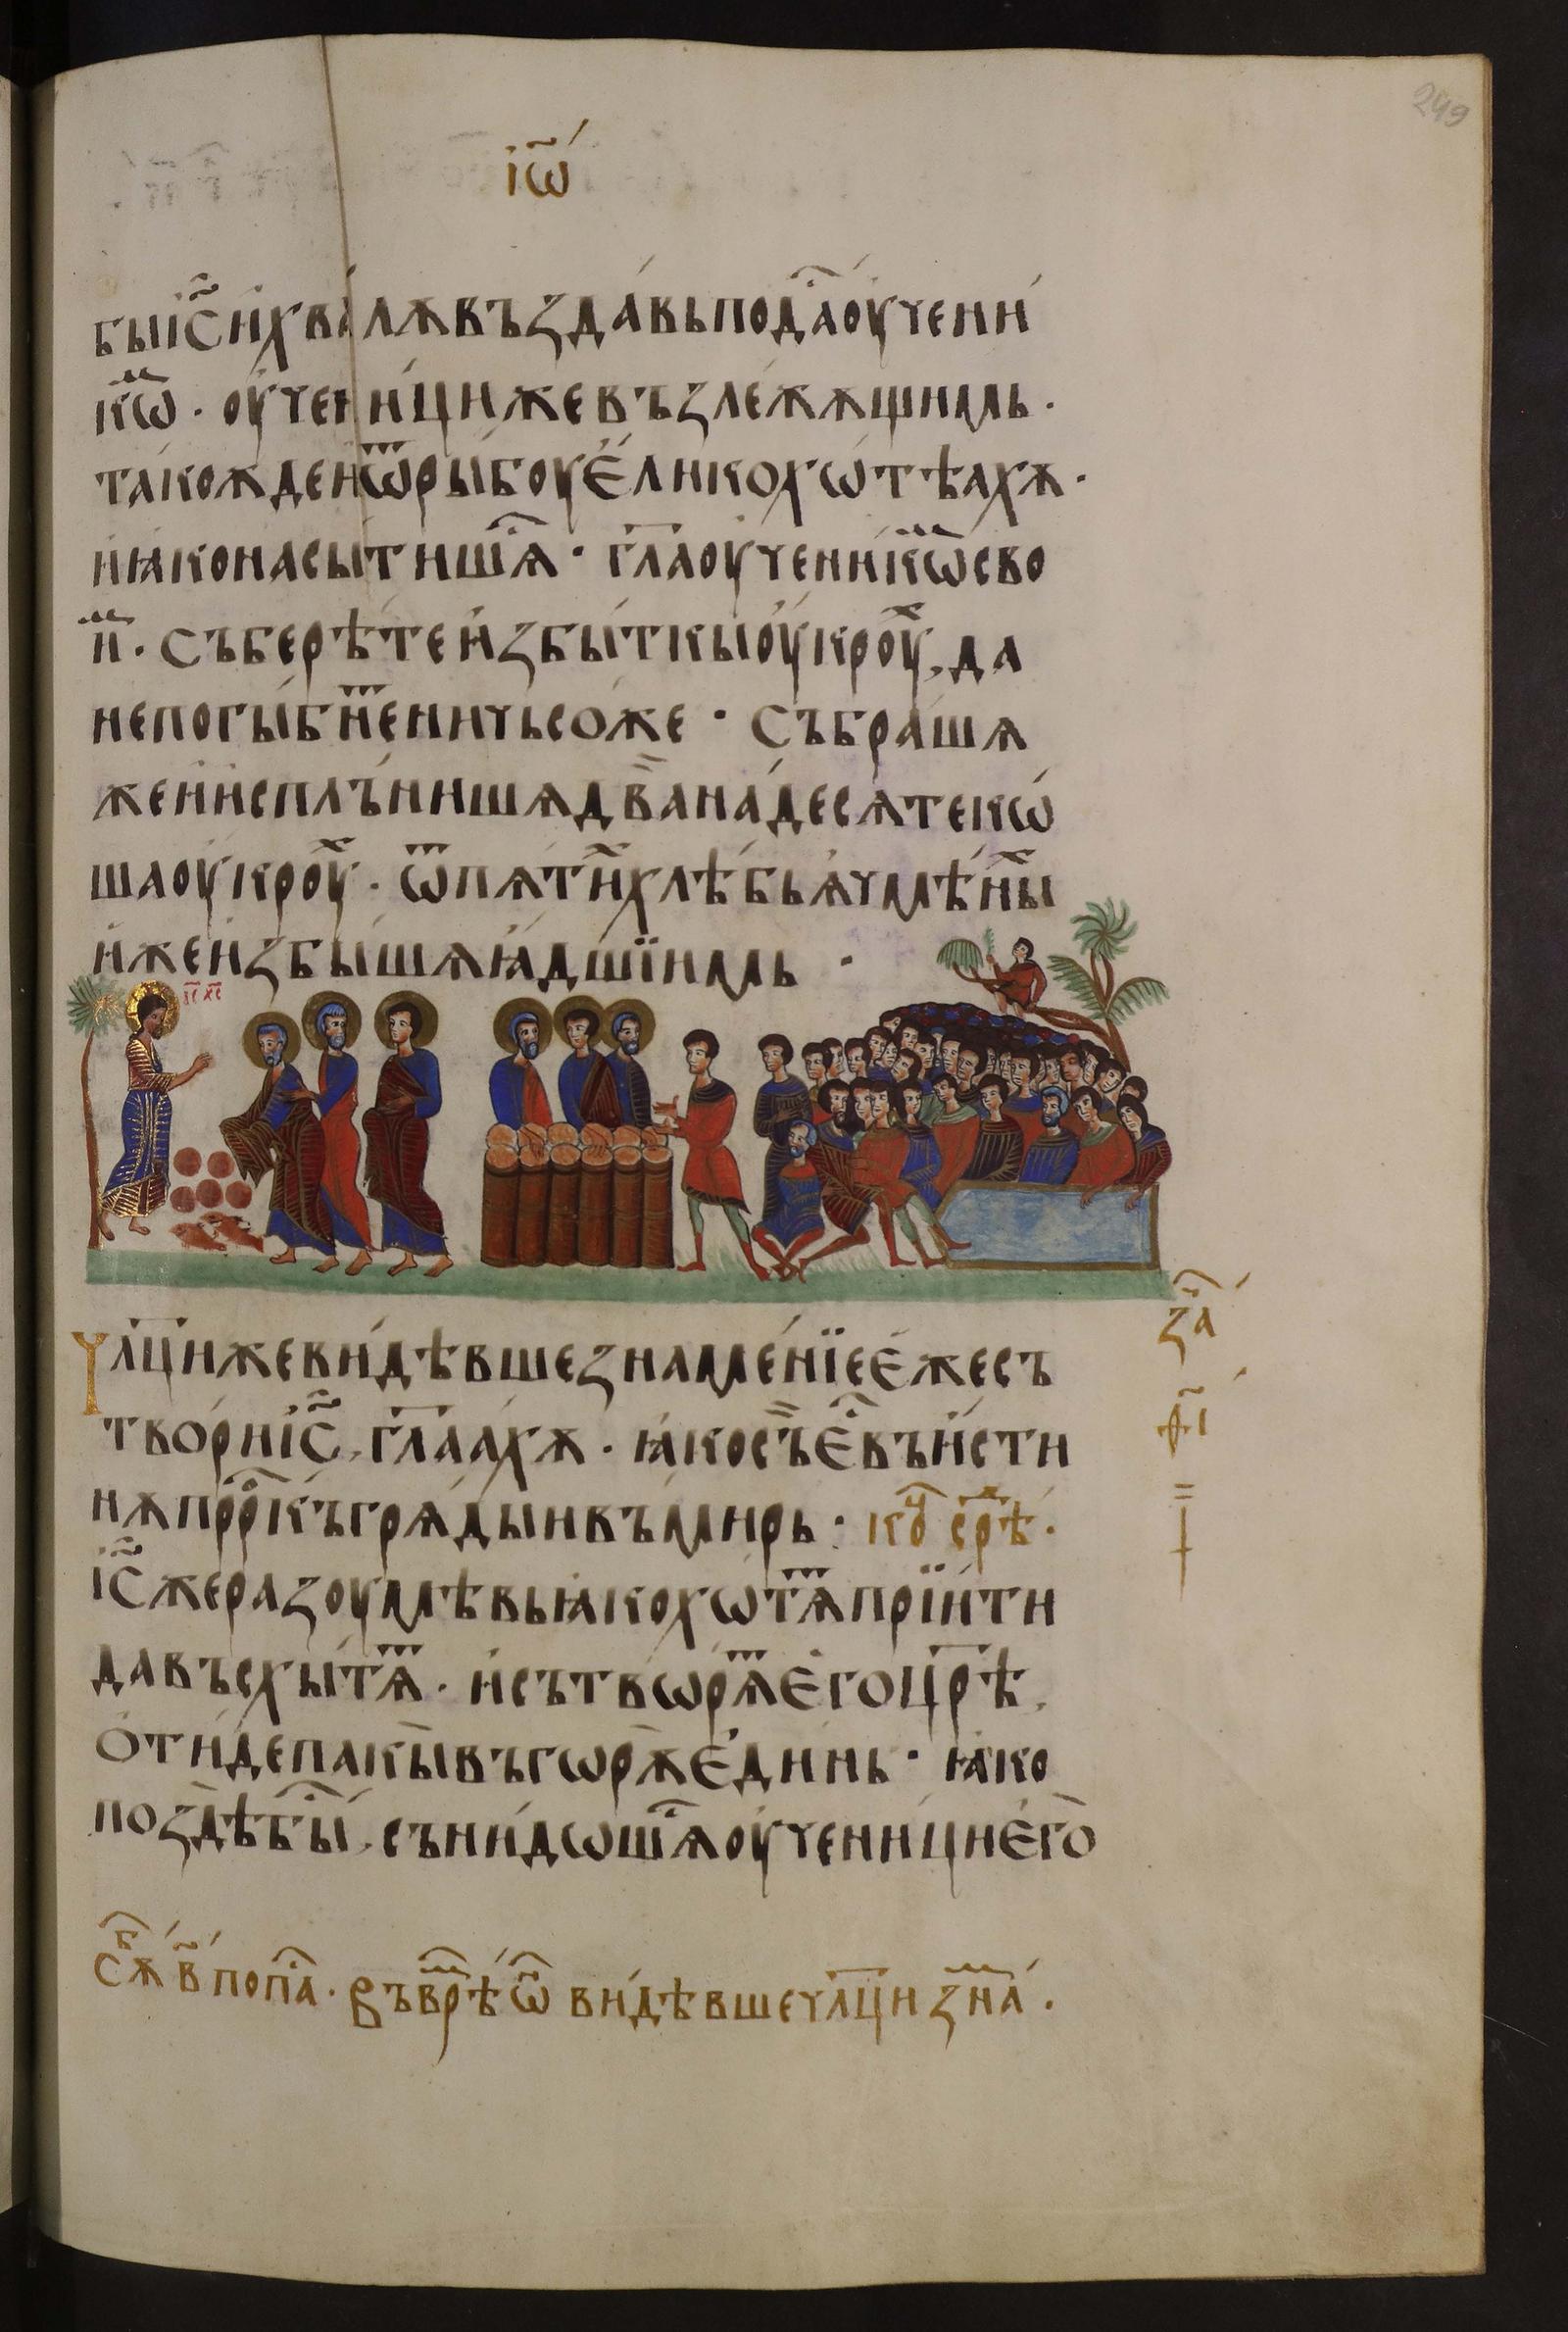 249
іѡ҃
быі҃сихвалѫвъздавьподаⷭ҇оучени
кѡⷨ · оученицижевъзлежѧщимь ·
такожⷣеиѿрыбоуеликохѡтѣахѫ ·
иꙗконасытишѧⷭ҇ · гл҃аоученикѡⷨсво
иⷨ · съберѣтеизбыткыоукроуⷯ, да
непогыбнеⷮничьсоже · събрашѧ
жеииспльнишѧдванадесѧтекѡ
шаоукроуⷯ · ѿпѧтихлѣбьѧчмѣныⷯ
ижеизбышѧꙗдшїимь ·
і҃с х҃с
чл҃цижевидѣвшезнаменїеежесъ
твориі҃с, гл҃аахѫ · ꙗкосъеⷭ҇въисти
нѫпрⷪ҇ркъгрѧдыивъмирь · коⷰ҇ срⷣѣ ·
і҃сжеразоумѣвьꙗкохѡтѧⷮпрїити
давъсхытѧⷮ · исътвѡрѧⷮегоцр҃ѣ,
отидепакывъгѡрѫединь · ꙗко
поздѣбыⷭ҇, сънидѡшѧⷭ҇оученициего
за҇ⷱ
ф҃і
сѫⷠ в҃ попаⷭ҇ · въврⷨѣѡⷩ҇ видѣвшечл҃ци знаⷨ ·